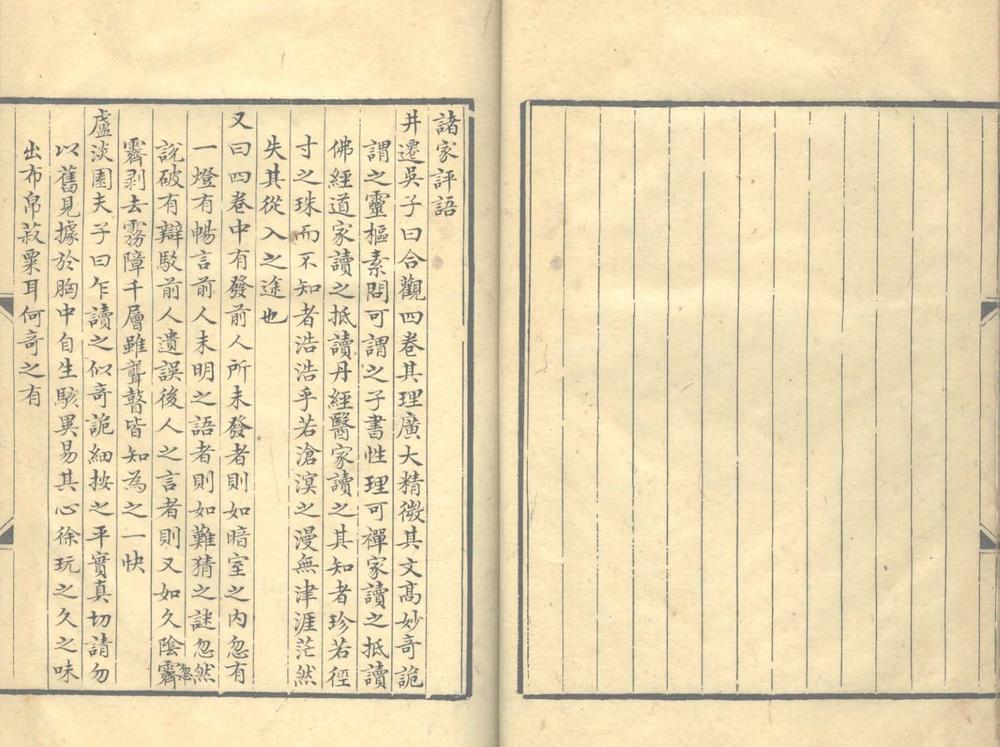 諸家評語
井遷吳子曰合觀四卷其理廣大精微其文高妙奇詭
謂之靈樞素問可謂之子書性理可禪家讀之抵讀
佛經道家讀之抵讀丹經醫家讀之其知者珍若徑
寸之珠而不知者浩浩乎若滄溟之漫無津涯茫然
失其從入之途也
又曰四卷中有發前人所未發者則如暗室之內忽有
一燈有暢言前人未明之語者則如難猜之謎忽然
說破有辯駁前人遺誤後人之言者則又如久陰忽霽
霽剥去霧障千層雖聾瞽皆知為之一快
盧淡園夫子曰乍讀之似奇詭細按之平實真切請勿
以舊見據於胸中自生駭異易其心徐玩之久之味
出布帛菽粟耳何奇之有